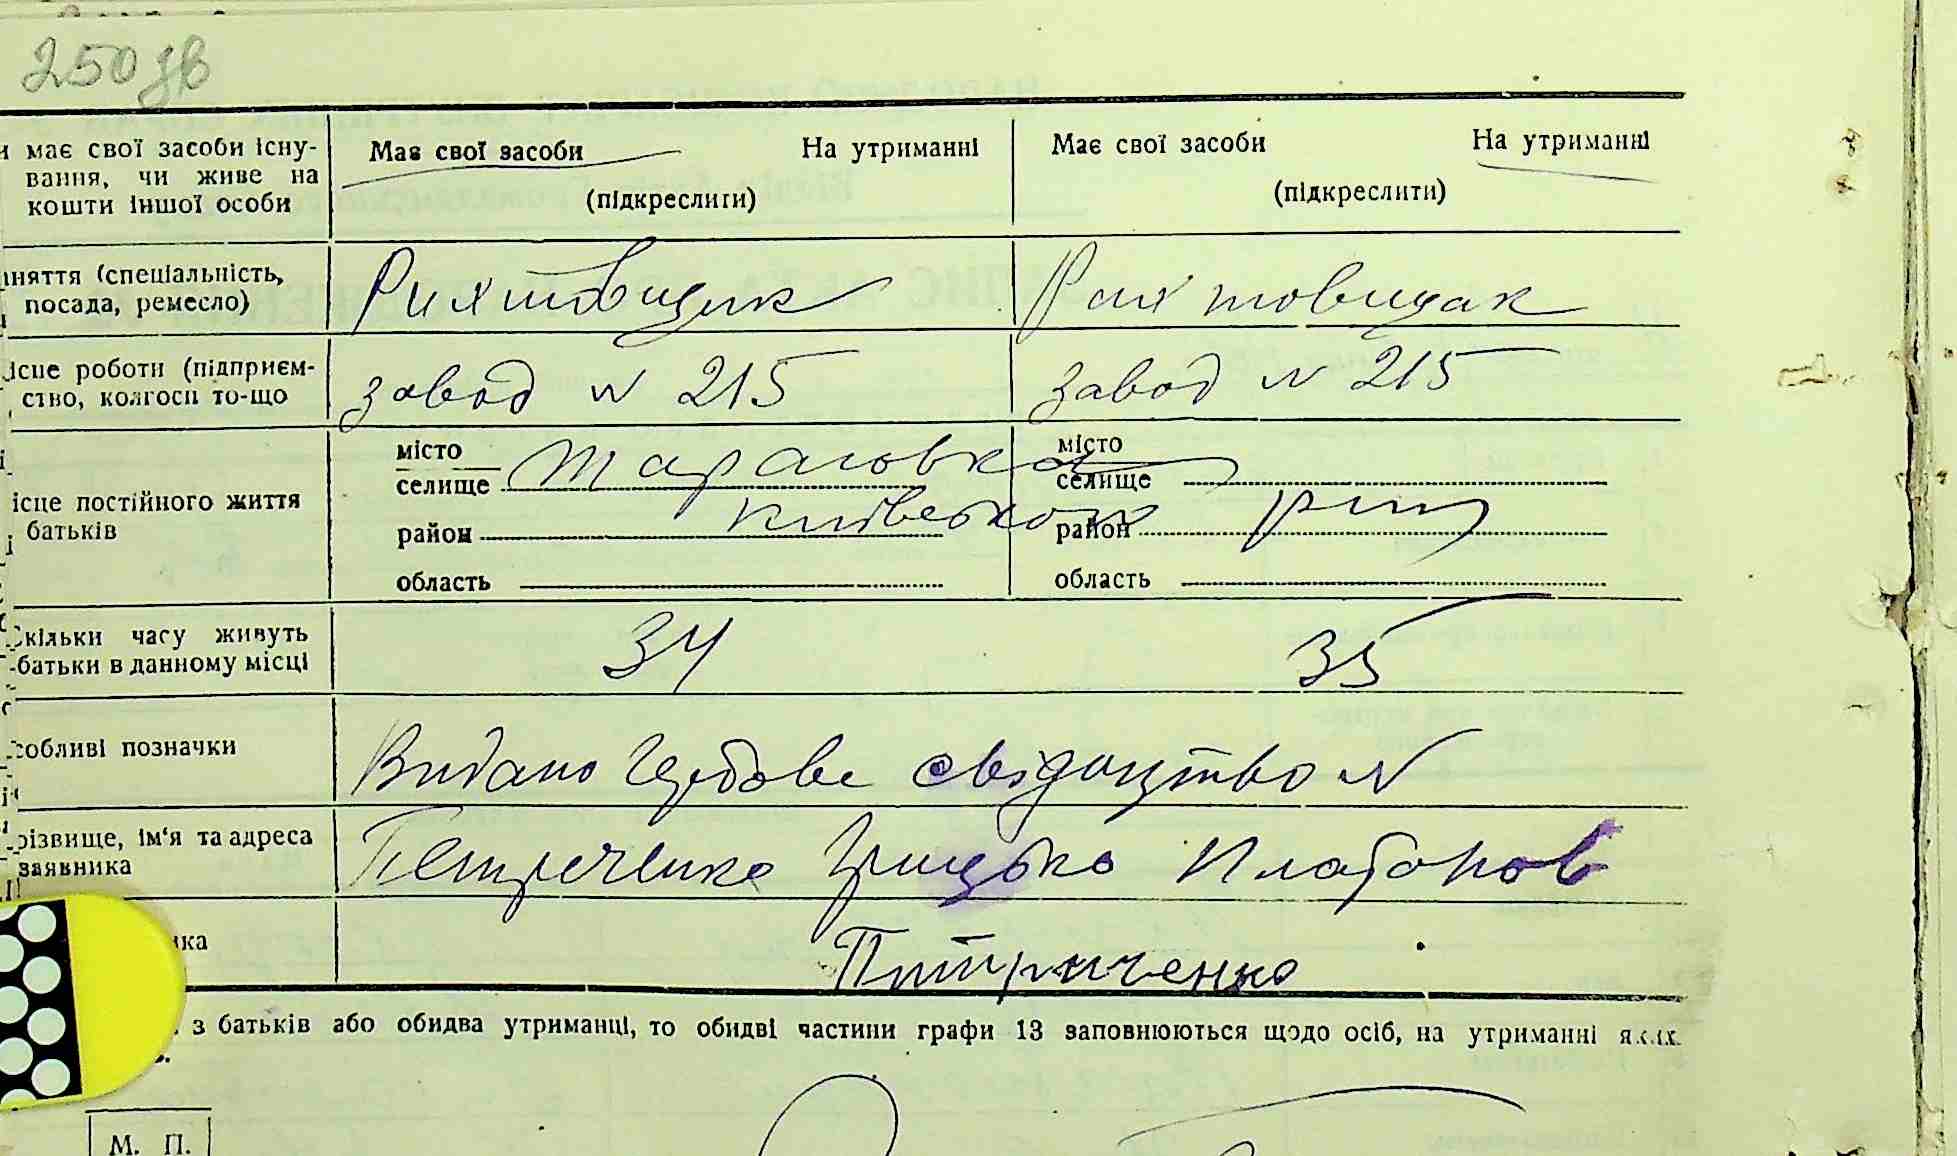 250 зв
має свої засоби існу-
вання, чи живе на
кошти іншої особи
Має свої засоби На утриманні
(підкреслити)
Має свої засоби На утриманні
(підкреслити)
няття (спеціальність,
посада, ремесло)
Рихтовщик
Рихтовщик
ісце роботи (підприєм-
ство, колгосп то-що
завод N 215
завод N 215
ісце постійного життя
батьків
місто
селище Тарасовка
район Київського
область
місто
селище
район р-ну
область
кільки часу живуть
батьки в данному місці
34
35
собливі позначки
Видано Гербове свідоцтво N
різвище, ім‘я та адреса
заявника
Петреченко Грицько Платонов
ика
Питриченко
з батьків або обидва утриманці, то обидві частини графи 13 заповнюються щодо осіб, на утриманні яких
М. П.